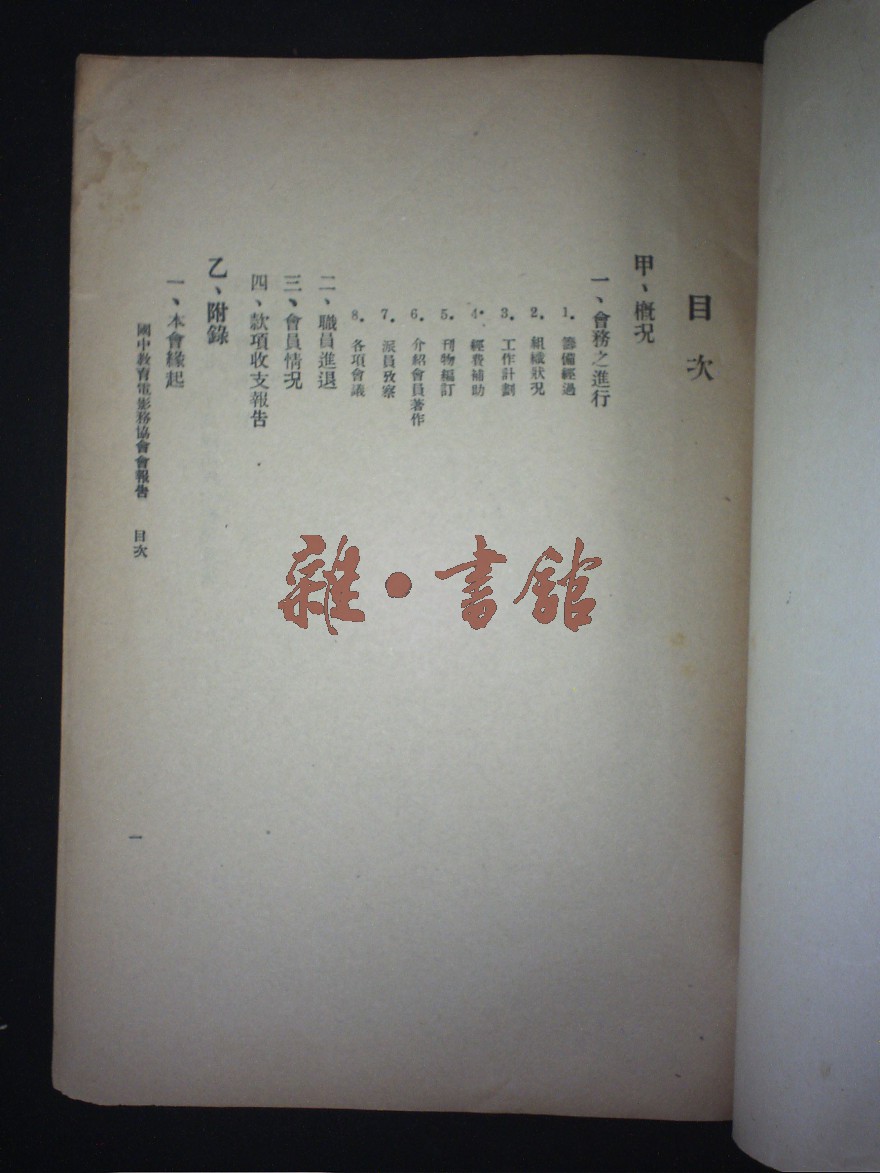 目次
甲、概況
一、會務之進行
1. 籌備經過
2. 組織狀况
3. 工作計劃
4. 經費補助
5. 刊物編訂
6. 介紹會員著作
7. 派員攷察
8. 各項會議
二、職員進退
三、會員情况
四、款項收支報告
乙、附錄
一、本會緣起
國中教育電影務協會會報告 目次
一
雜·書館